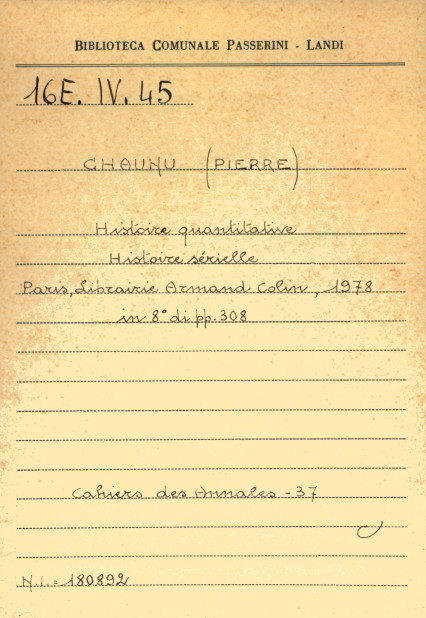 BIBLIOTECA COMUNALE PASSERINI - LANDI
16E. IV. 45
CHAUNU (PIERRE)
Histoire quantitative
Histoire sérielle
Paris, Librairie Armand Colin, 1978
in 8° di pp. 308
Cahiers des Annales - 37
N.I. = 180892